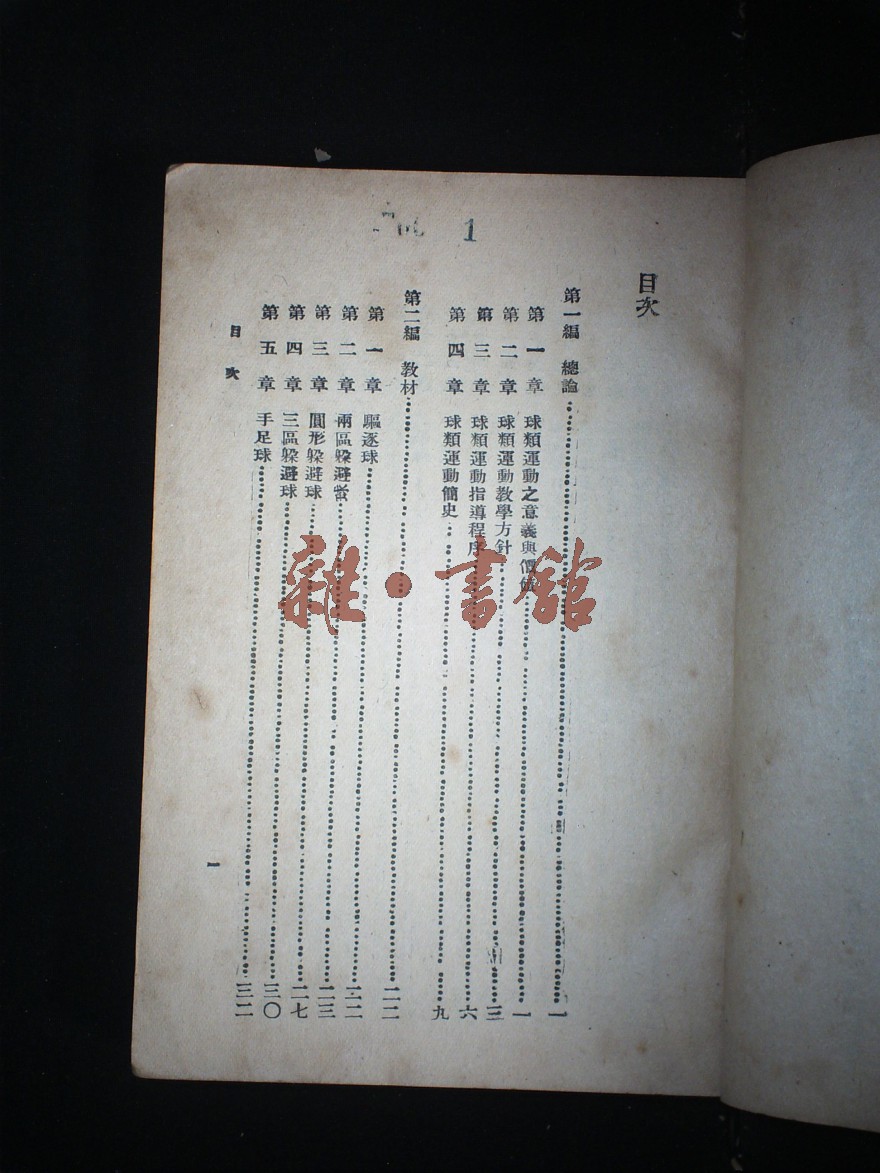 1
目次
第一編 總論……一
第一章 球類運動之意義與價值……一
第二章 球類運動教學方針……三
第三章 球類運動指導程序……六
第四章 球類運動簡史……九
第二編 教材……二二
第一章 驅逐球……二二
第二章 兩區躲避球……二三
第三章 圓形躲避球……二七
第四章 三區躲避球……三〇
第五章 手足球……三二
目次
一
雜·書館